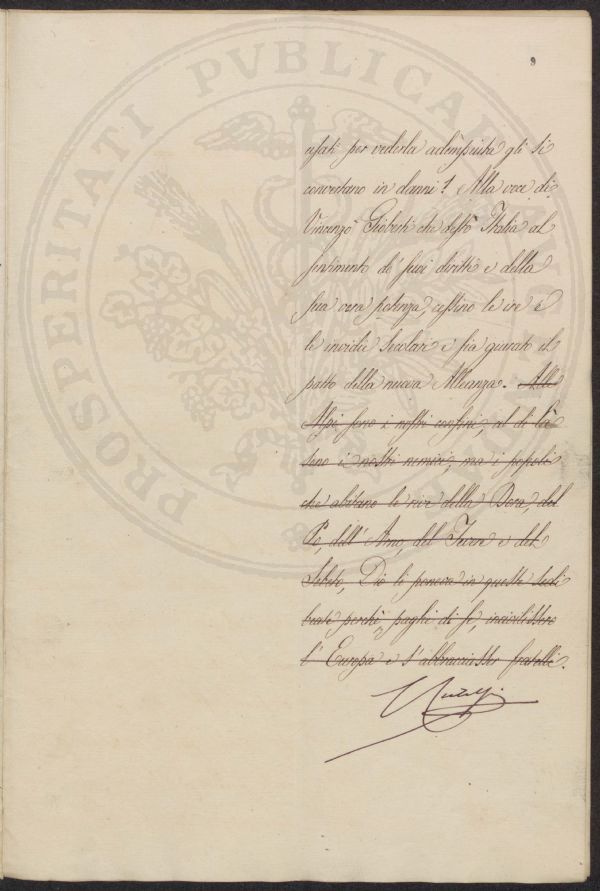 9
usati per vederla adempiuta gli si
convertano in danni! Alla voce di
Vincenzo Gioberti che destò Italia al
sentimento de' suoi diritti e della
sua vera potenza, cessino le ire e
le invidie secolari e sia giurato il
patto della nuova Alleanza. Alle
Alpi sono i nostri confini, al di là
sono i nostri nemici, ma i popoli
che abitano le rive della Dora, del
Po, dell' Arno, del Tevere e del
Sebeto, Dio li poneva in queste sedi
beate perchè, paghi di se, incivilissero
l' Europa e s' abbracciasser fratelli.
PROSPERITATI PVBLICAE